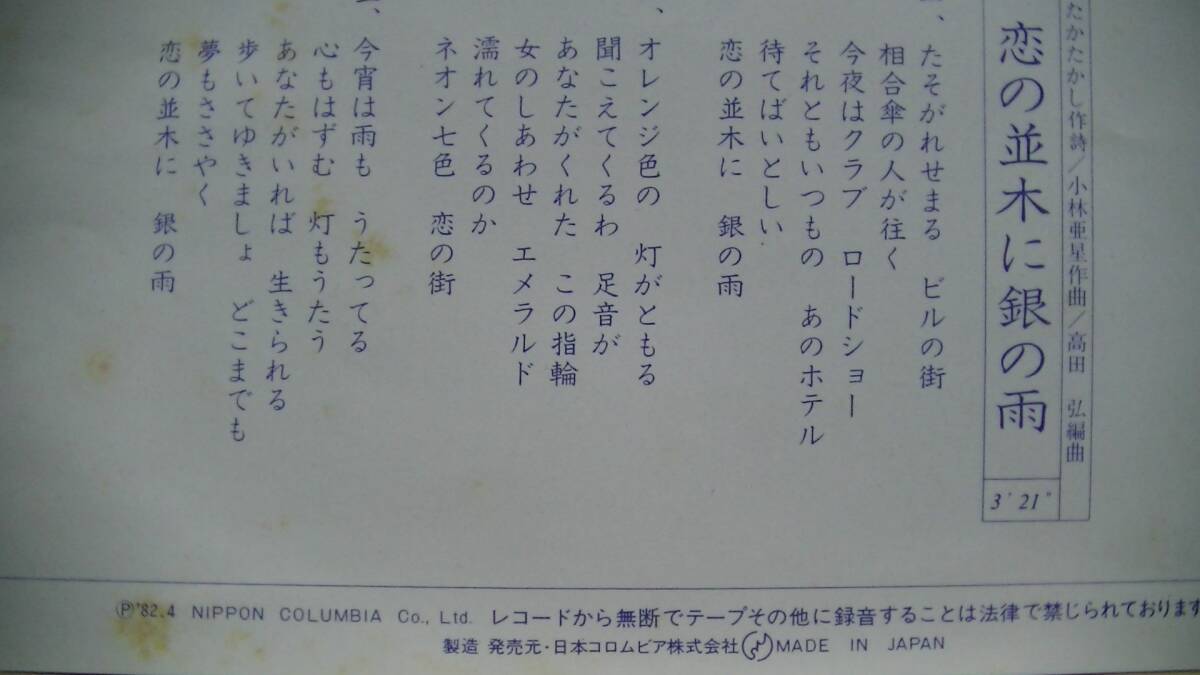 たかたかし作詩／小林亜星作曲／高田　弘編曲
恋の並木に銀の雨
3'21"
一、たそがれせまる　ビルの街
相合傘の人が往く
今夜はクラブ　ロードショー
それともいつもの　あのホテル
待てばいとしい
恋の並木に　銀の雨
、オレンジ色の　灯がともる
聞こえてくるわ　足音が
あなたがくれた　この指輪
女のしあわせ　エメラルド
濡れてくるのか
ネオン七色　恋の街
、今宵は雨も　うたってる
心もはずむ　灯もうたう
あなたがいれば　生きられる
歩いてゆきましょ　どこまでも
夢もささやく
恋の並木に　銀の雨
Ⓟ'82.4 NIPPON COLUMBIA Co., Ltd. レコードから無断でテープその他に録音することは法律で禁じられております
製造 発売元・日本コロムビア株式会社 MADE IN JAPAN